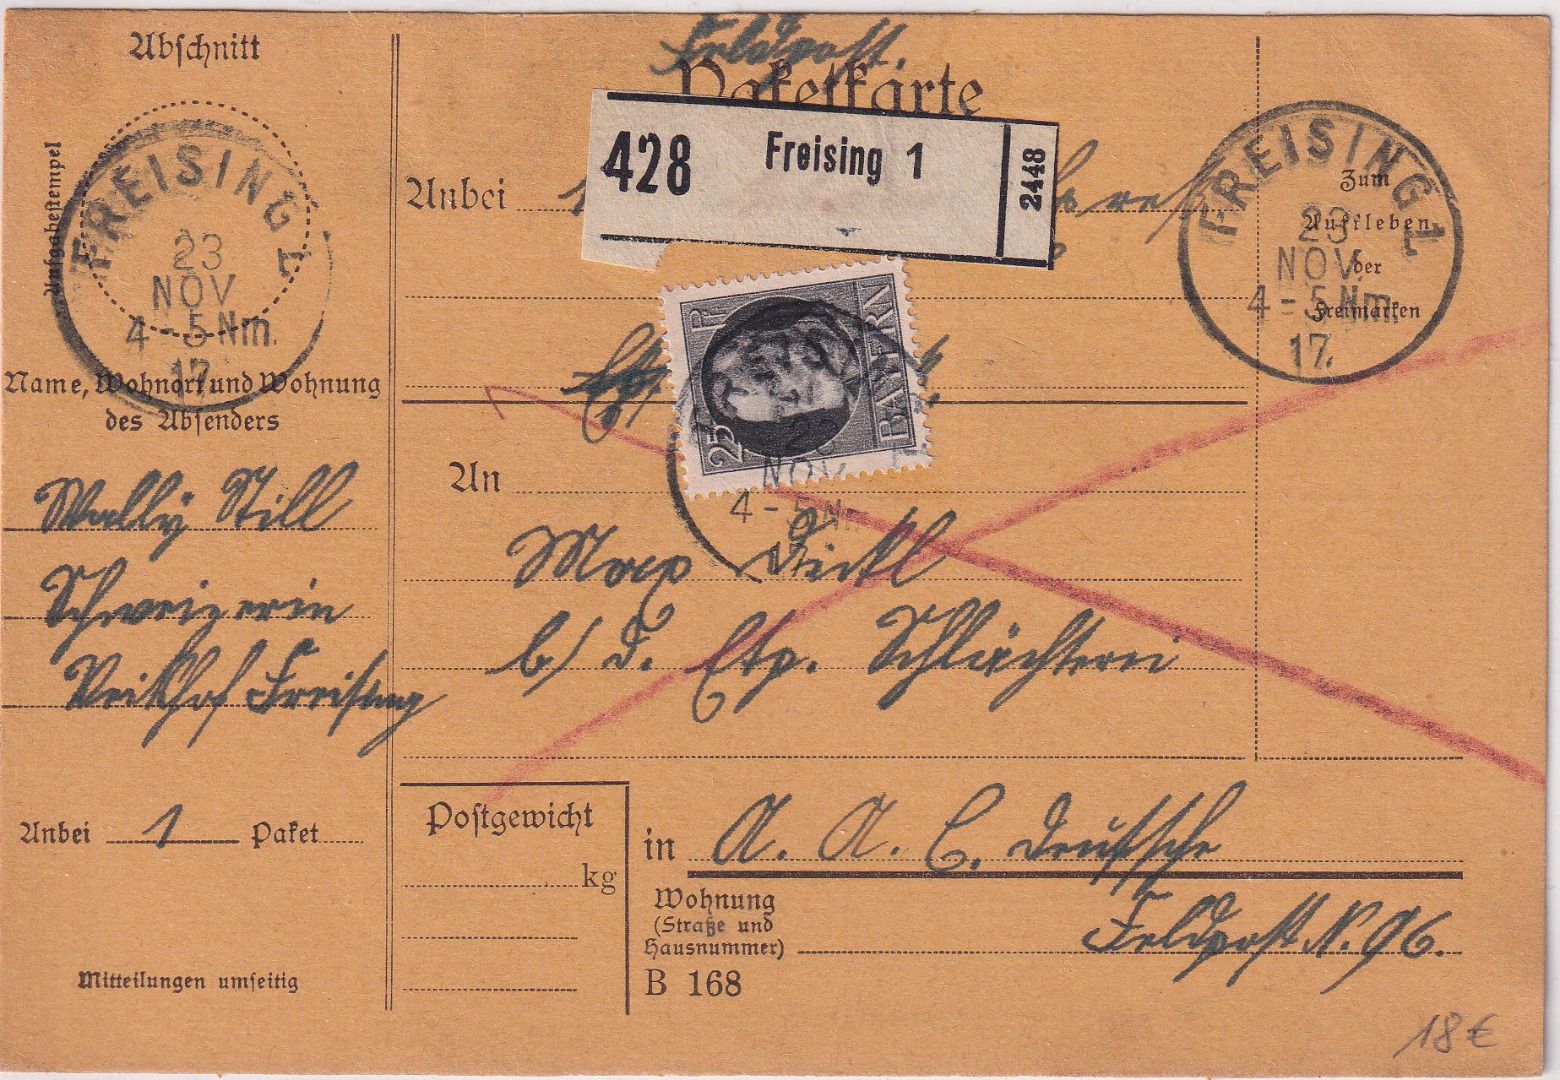 Abschnitt
Ausgabestempel
FREISING 1
23
NOV
4-5 Nm.
17.
Name, Wohnort und Wohnung
des Absenders
Wally Still
Schweizerin
Veithof Freising
Anbei 1 Paket
Mitteilungen umseitig
Feldpost.
Paketkarte
428 Freising 1 2448
Anbei
25 PF BAYERN
NOV
4-5 Nm
An
Max Dietl
b/ d. Etp. Schlächterei
Postgewicht
kg
in A. A. C. Deutsche
Wohnung
(Straße und
Hausnummer)
Feldpost N. 96.
B 168
FREISING 1
23
NOV
4-5 Nm.
17.
Zum
Aufkleben
der
Freimarken
18 €